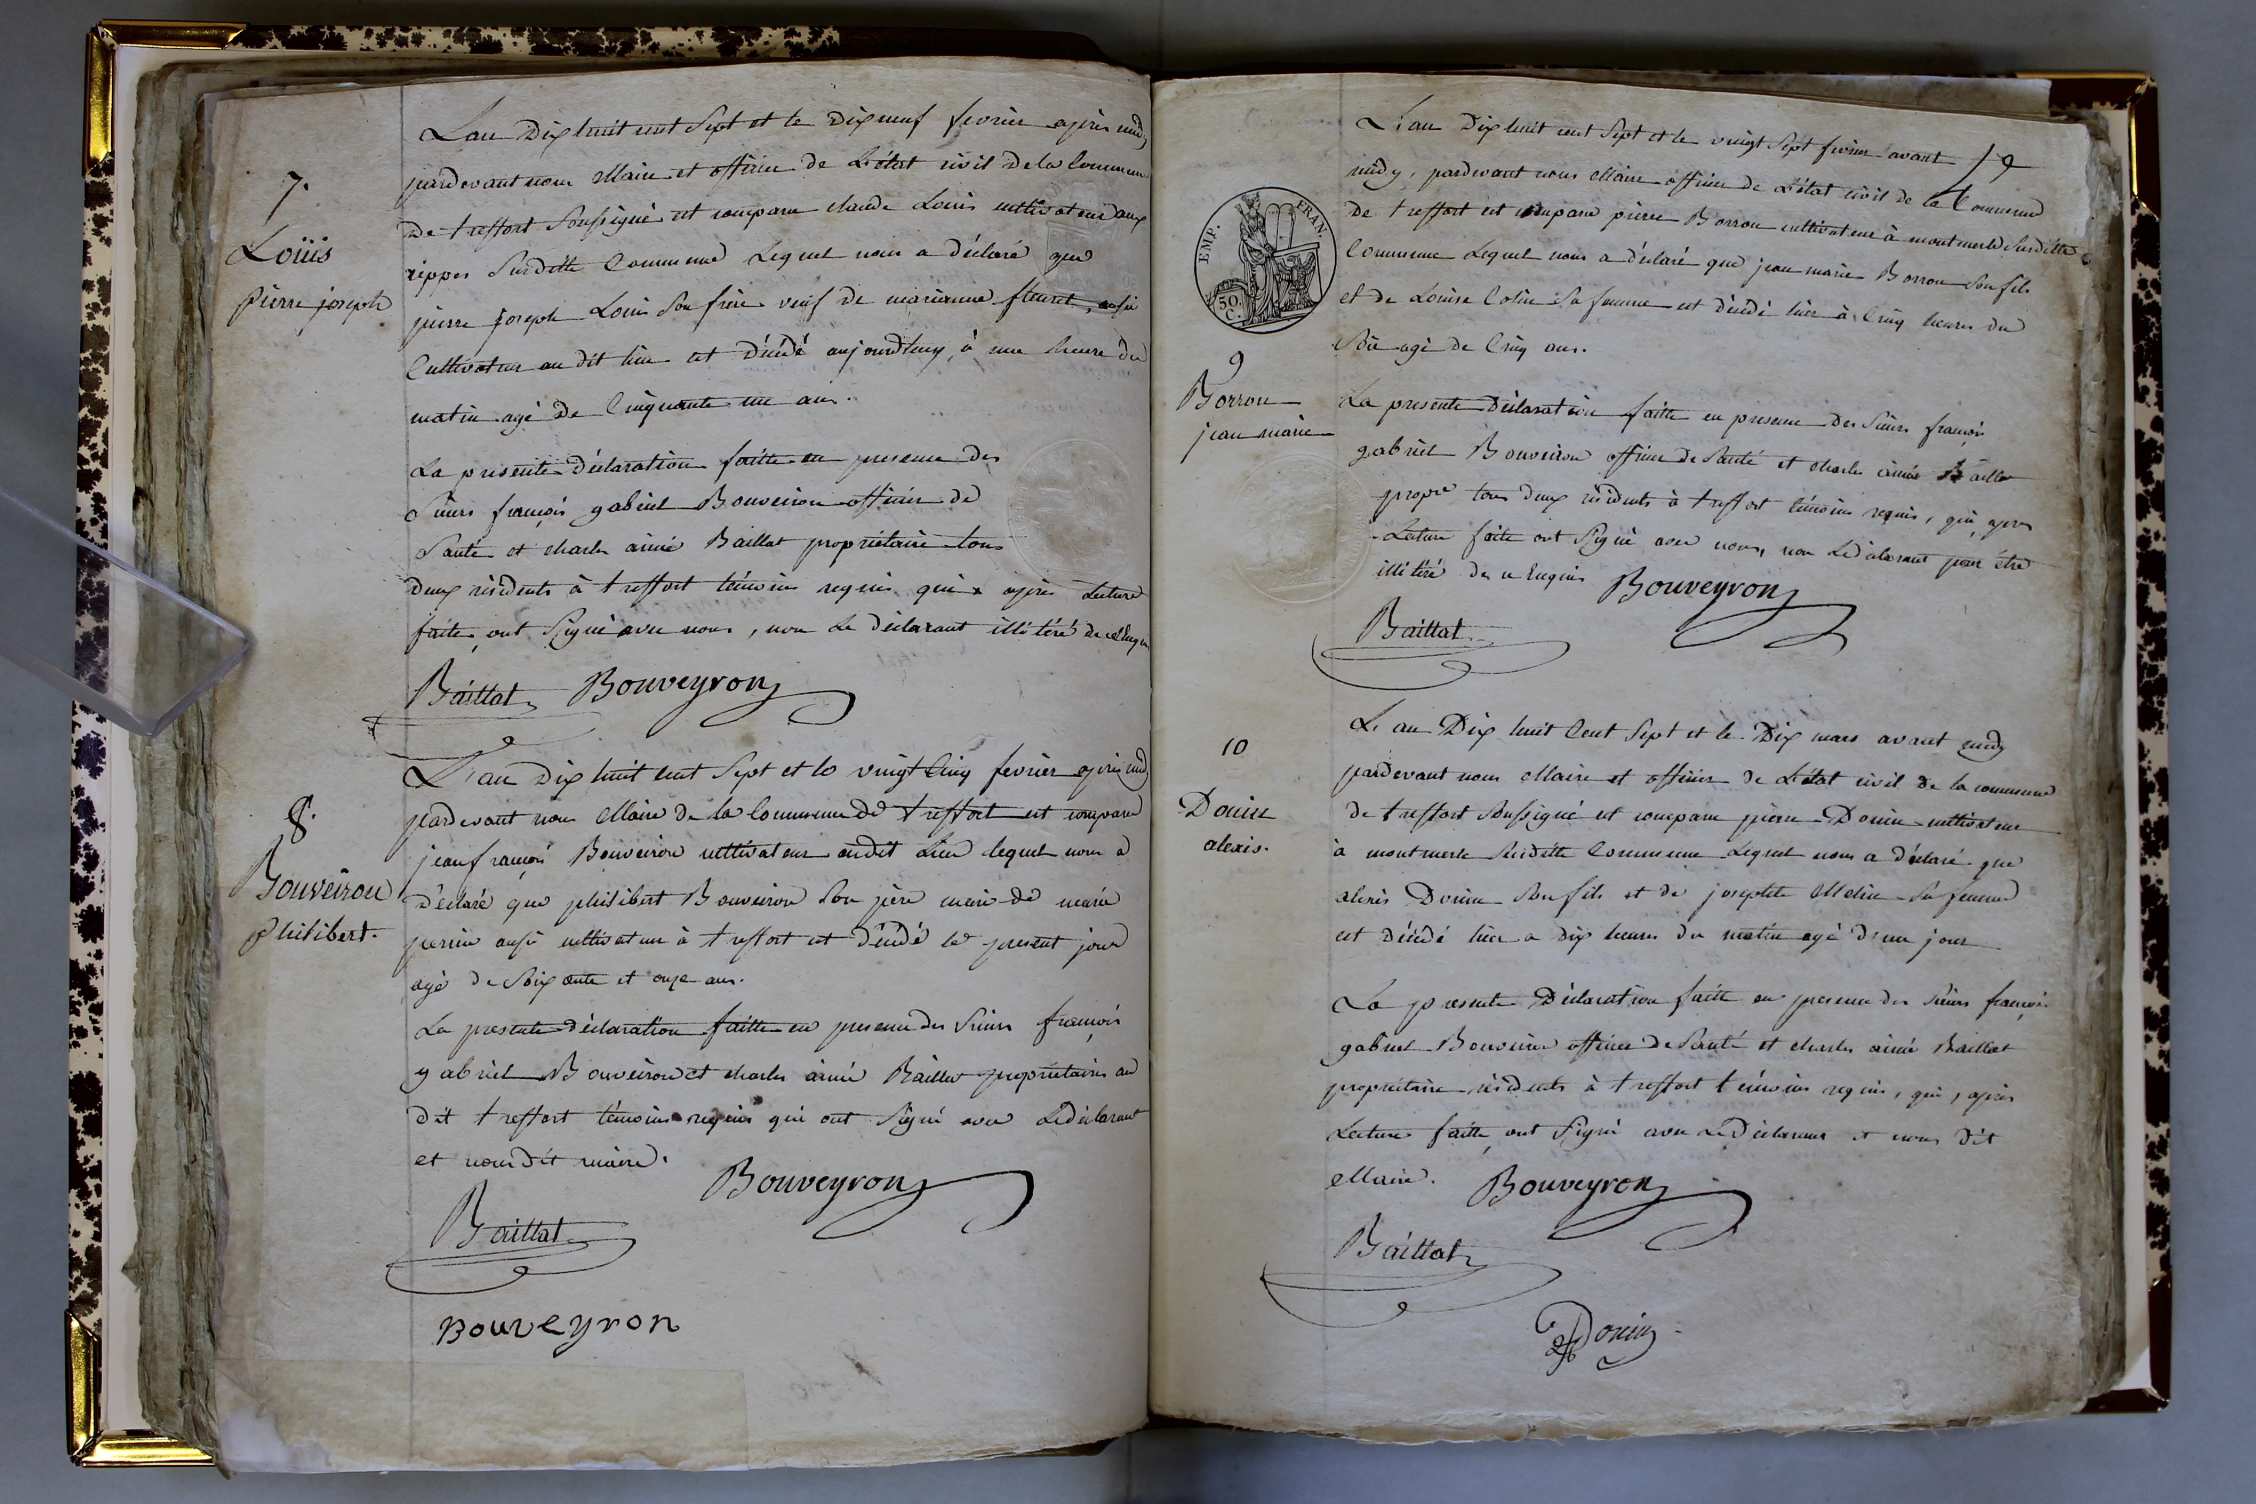 7.
Loüis
pierre joseph
L'an Dix huit cent Sept et le Dix neuf fevrier apris midy
pardevant nous Maire et officier de L'état civil de la Commune
de treffort Soussigné est comparu claude Louis cultivateur aux
rippes Susditte Commune Lequel nous a déclaré que
pierre joseph Louis Son frère veuf de marianne fleuret, aussi
Cultivateur au dit lieu est Décédé aujourdhuy, à une heure du
matin agé de Cinquante un ans.
La presente déclaration faitte en presence des
Sieurs françois gabriel Bouveiron officier de
Santé et charles aimé Baillat propriétaire tous
deux résidents à treffort témoins requis qui après Lecture
faite, ont Signé avec nous, non Le déclarant illitéré de ce Enquis
Baillat Bouveyron
8.
Bouveiron
philibert.
L'an Dix huit cent Sept et le vingt Cinq fevrier après midy
pardevant nous Maire de la Commune de treffort est comparu
jean françois Bouveiron cultivateur audit Lieu lequel nous a
déclaré que philibert Bouveiron Son père mari de marie
perrin aussi cultivateur à treffort est Décédé le present jour
agé de Soixante et onze ans.
La presente déclaration faitte en presence des Sieurs françois
gabriel Bouveiron et charles aimé Baillat propriétaires au
dit treffort témoins requis qui ont Signé avec Le déclarant
et nous dit maire.
Bouveyron
Baillat
Bouveyron
EMP. FRAN.
50. C.
L'an Dix huit cent Sept et le vingt Sept fevrier avant
midy, pardevant nous Maire officier de L'état civil de la Commune
de treffort est comparu pierre Borron cultivateur à montmerle Susditte
Commune Lequel nous a déclaré que jean marie Borron Son fils
et de Louise Colin Sa femme est décédé hier à Cinq heures du
Soir agé de Cinq ans.
9
Borron
jean marie
La presente Déclaration faitte en presence des Sieurs françois
gabriel Bouveiron officier de Santé et charles aimé Baillat
propre tous deux résidents à treffort témoins requis, qui, apres
Lecture faite ont Signé avec nous, non Le déclarant pour être
illitéré de ce Enquis Bouveyron
Baillat
10
Douin
alexis.
L'an Dix huit Cent Sept et le Dix mars avant midy
pardevant nous Maire et officier de L'état civil de la commune
de treffort Soussigné est comparu pierre Douin cultivateur
à montmerle Susditte Commune Lequel nous a déclaré que
alexis Douin Son fils et de josephte Melin Sa femme
est Décédé hier a Dix heures du matin agé d'un jour
La presente Déclaration faitte en presence des Sieurs françois
gabriel Bouveiron officier de Santé et charles aimé Baillat
propriétaire résidents à treffort témoins requis, qui, après
Lecture faitte, ont Signé avec Le Déclarant et nous dit
Maire. Bouveyron
Baillat
Douin